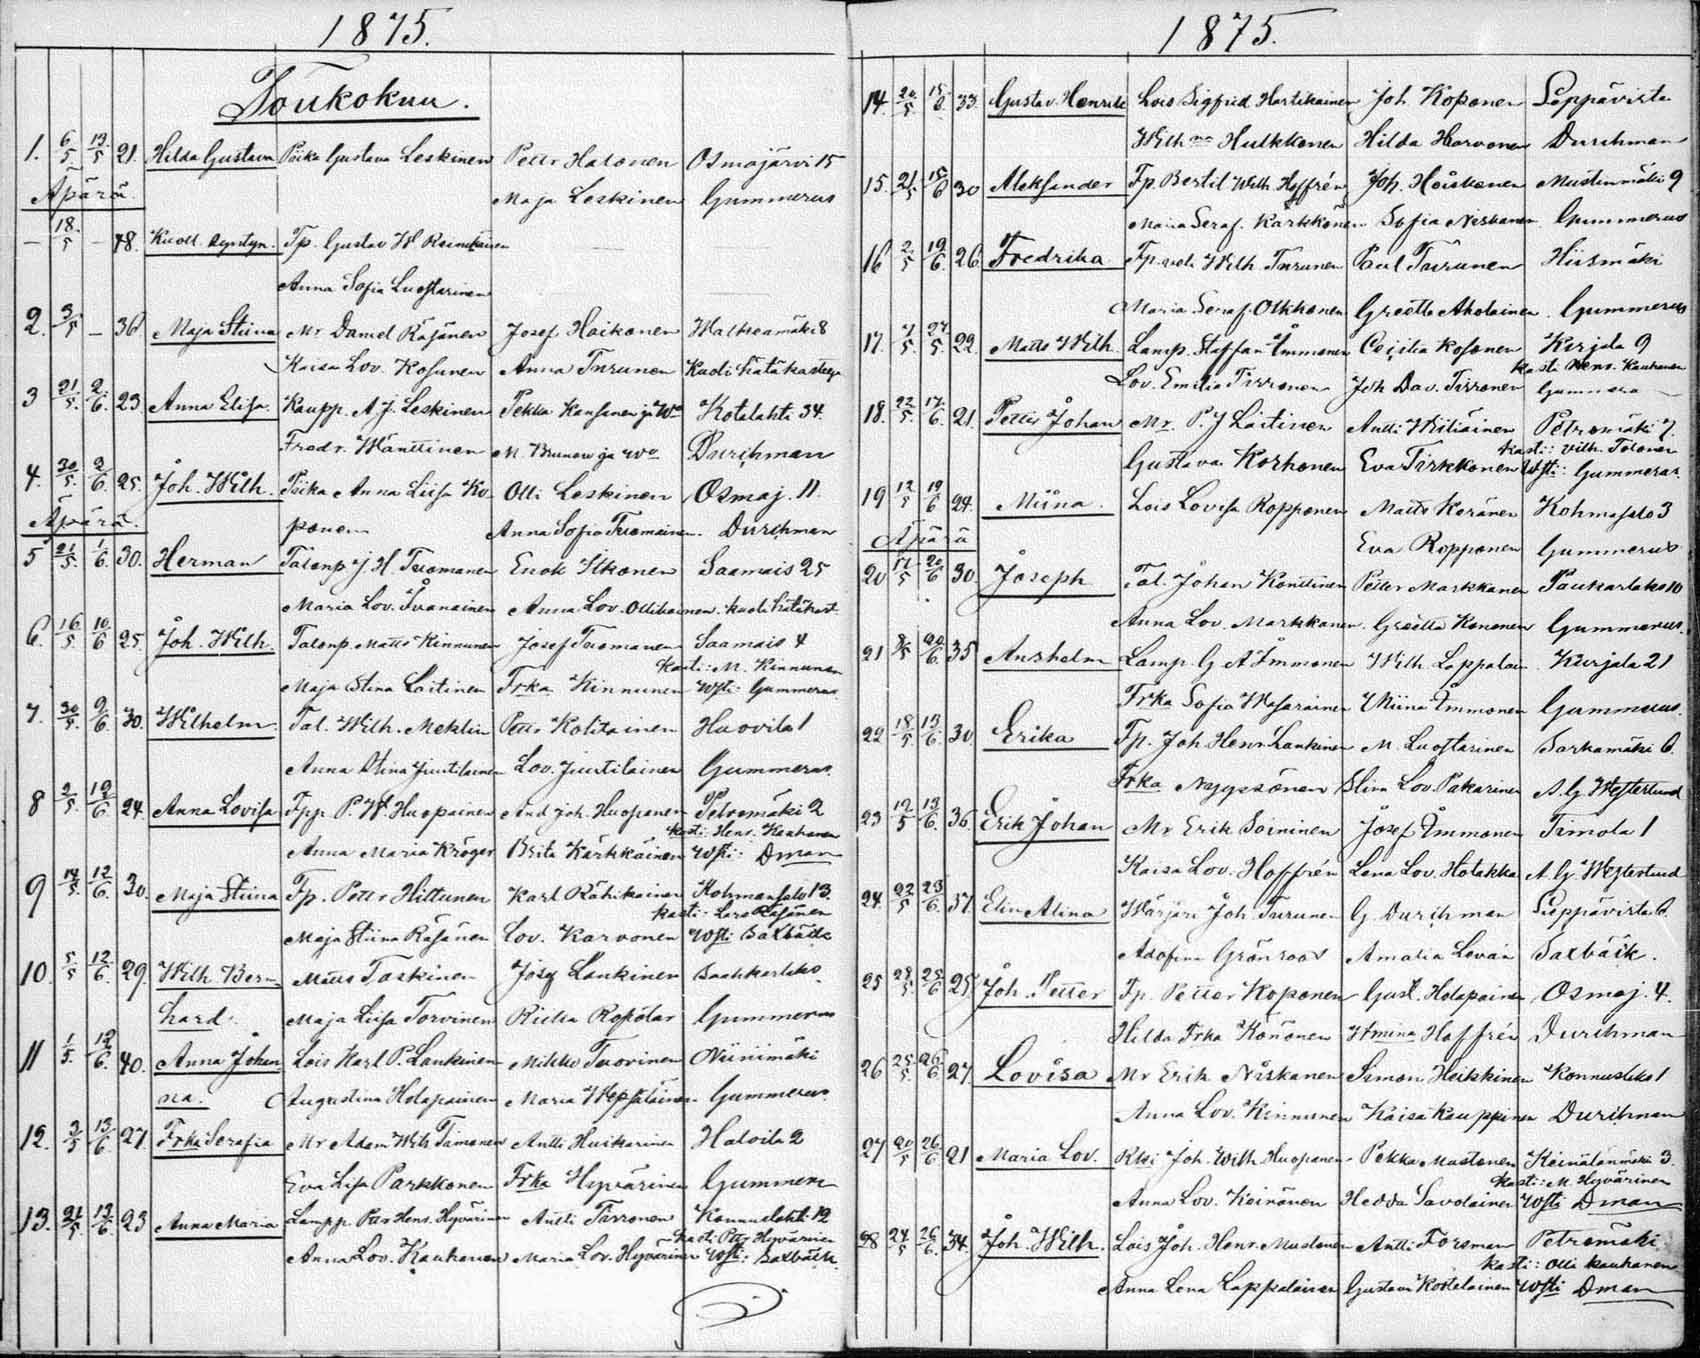 1875.
Toukokuu.
1. 6/5 13/5 21. Hilda Gustava Piika Gustava Leskinen Petter Halonen Osmajärvi 15
Äpärä. Maja Leskinen Gummerus
– 18/5 – 18. Kuoll. syntyn. Tp. Gustav W Reinikainen
Anna Sofia Luostarinen
2. 3/5 – 36. Maja Stiina Mr Daniel Räsänen Josef Haikonen Walkeamäki 8
Kaisa Lov. Kosunen Anna Turunen Kuoli hätäkasteesa
3 21/5 2/6 23. Anna Elisa Kaupp. A. J. Leskinen Pekka Kansanen ja Wo Kotalahti 34.
Fredr. Wänttinen M. Brunow ja Wo Durchman
4. 30/5 2/6 25. Joh. Wilh. Piika Anna Liisa Ko- Olli Leskinen Osmaj. 11.
Äpärä. ponen Anna Sofia Tuomainen. Durchman
5 21/5 1/6 30. Herman Talonp J. H. Tuomanen Enok Ikonen Saamais 25
Maria Lov. Iivanainen Anna Lov. Ollikainen. kuoli hätäkast.
6. 16/5 10/6 25. Joh. Wilh. Talonp. Matts Kinnunen Josef Tuomanen Saamais 4
kasti: M. Kinnunen
Maja Stina Laitinen Frka Kinnunen Wsti: Gummerus
7. 30/5 9/6 30. Wilhelm Tal. Wilh. Meklin Petter Kolitainen Huovila 1
Anna Stina Juutilainen Lov. Juutilainen Gummerus.
8 2/5 12/6 24. Anna Lovisa Fpp. P. W. Huopainen And Joh. Huopanen Petromäki 2
kasti: Henr. Kauhanen
Anna Maria Kröger Brita Kärkkäinen Wsti: Dman
9 14/5 12/6 30. Maja Stiina Fp. Petter Hittunen Karl Rähikainen Kohmansalo 13.
kasti: Lars Räsänen
Maja Stiina Räsänen Lov. Karvonen Wsti Saxbäck
10. 5/5 12/6 29. Wilh. Bern- Matts Taskinen Josef Laukinen Saahkarlaks.
hard. Maja Liisa Torvinen Riikka Ropólar Gummerus
11 1/5 12/6 40. Anna Johan- Lois Karl P. Laukinen Mikko Tuovinen Niinimäki
na. Augustina Holopainen Maria Wepsäläinen. Gummerus.
12. 3/5 13/6 27. Frka Serafia Mr Adam Wilh Timonen Antti Huikarinen Haloila 2
Eva Lisa Parkkonen Frka Hyvärinen Gummerus
13. 21/5 13/6 23 Anna Maria Lampp. Petter Henr. Hyvärinen Antti Tirronen Konnuslahti 12
kasti: Petter Hyvärinen
Anna Lov. Kauhanen Maria Lov. Hyvärinen Wsti: Saxbäck
1875.
14. 20/5 15/6 33. Gustav Henrik Lois Sigfrid Hartikainen Joh Koponen Leppävirta
Wilh na Hulkkonen Hilda Harvonen Durchman
15. 21/5 15/6 30 Aleksander Fp. Bertil Wilh. Hoffrén Joh. Hoiskanen Mustinmäki 9
Maria Seraf. Kärkkönen Sofia Niskanen Gummerus
16 2/5 19/6 26. Fredrika Fp. veli Wilh. Turunen Paul Turunen Hiismäki
Maria Seraf. Olkkonen Greetta Aholainen Gummerus
17. 7/5 27/5 22. Matts Wilh. Lamp. Staffan Immonen Cecilia Kosonen Kurjala 9
kasti Henr. Kauhanen
Lov. Emilia Tirronen Joh Dav. Tirronen Gummerus
18. 22/5 17/6 21. Petter Johan Mr. P. J Laitinen Antti Wiliäinen Petromäki 7.
kasti: Vilh. Tolonen
Gustava Korhonen Eva Tirkkonen Wsti: Gummerus.
19 12/5 19/6 24. Miina. Lois Lovisa Ropponen Matts Keränen Kohmasalo 3
Äpärä Eva Ropponen Gummerus
20 17/5 20/6 30. Joseph Tal. Johan Konttinen Petter Markkanen Paukarlaks 10
Anna Lov. Markkanen. Greetta Kononen Gummerus.
21 8/5 20/6 35 Anshelm Lamp. G A Immonen Wilh. Lappalain Kurjala 21
Frka Sofia Wasarainen Miina Immonen Gummerus.
22 18/5 13/6 30. Erika Fp. Joh Henr Laukinen M. Luostarinen Sarkamäki 6.
Frka Nyyssönen Stina Lov. Pakarinen A. G. Westerlund
23 12/5 13/6 36. Erik Johan Mr Erik Soininen Josef Immonen Timola 1
Kaisa Lov. Hoffrén Lena Lov. Holakka A. G. Westerlund
24. 22/5 23/6 37. Elin Alina Wärjäri Joh. Turunen G. Durchman Leppävirta 6.
Adofina Grönroos Amalia Lovén Saxbäck.
25 28/5 25/6 25. Joh. Petter Fp. Petter Koponen Gust. Holopainen Osmaj. 4.
Hilda Frka Könönen Wmina Hoffrén Durchman
26 25/5 26/6 27. Lovisa Mr Erik Niskanen Simon Heikkinen Konnuslaks 1
Anna Lov. Kinnunen Kaisa Kauppinen Durchman
27 20/5 26/6 21 Maria Lov. Rtsi Joh. Wilh. Huopanen. Pekka Mustonen Keinälänmäki 3.
kasti: M. Hyvärinen
Anna Lov. Keinänen Hedda Savolainen Wsti Dman
28 24/5 26/6 34. Joh. Wilh. Lois Joh. Henr. Mustonen Antti Forsman Petromäki
kasti: Olli Kauhanen
Anna Lena Lappalainen Gustava Kostelainen Wsti Dman